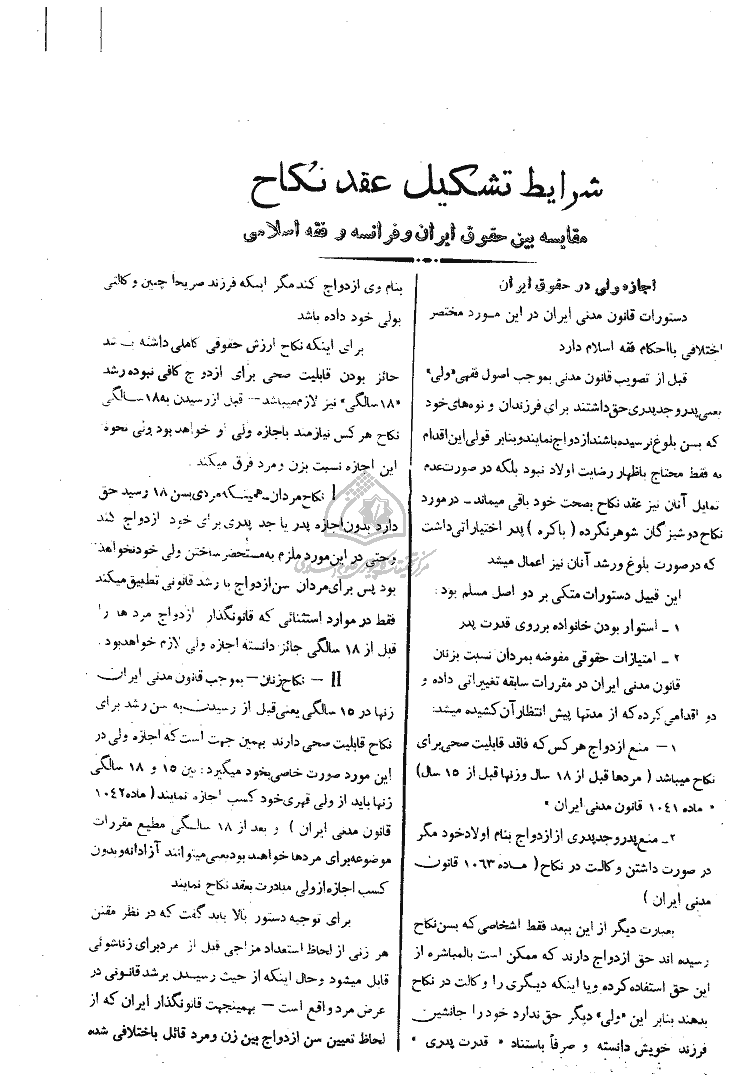 شرایط تشکیل عقد نکاح
مقایسه بین حقوق ایران و فرانسه و فقه اسلامی
اجازه ولی در حقوق ایران
دستورات قانون مدنی ایران در این مورد مختصر
اختلافی بااحکام فقه اسلام دارد
قبل از تصویب قانون مدنی بموجب اصول فقهی «ولی»
یعنی پدر و جد پدری حق داشتند برای فرزندان و نوه های خود
که بسن بلوغ نرسیده باشند ازدواج نمایند و بنابر قولی این اقدام
نه فقط محتاج باظهار رضایت اولاد نبود بلکه در صورت عدم
تمایل آنان نیز عقد نکاح بصحت خود باقی میماند - در مورد
نکاح دوشیزگان شوهر نکرده ( باکره ) پدر اختیاراتی داشت
که در صورت بلوغ و رشد آنان نیز اعمال میشد
این قبیل دستورات متکی بر دو اصل مسلم بود :
۱ - استوار بودن خانواده بر روی قدرت پدر
۲ - امتیازات حقوقی مفوضه بمردان نسبت بزنان
قانون مدنی ایران در مقررات سابقه تغییراتی داده و
دو اقدامی کرده که از مدتها پیش انتظار آن کشیده میشد:
۱ - منع ازدواج هر کس که فاقد قابلیت صحی برای
نکاح میباشد ( مردها قبل از ۱۸ سال و زنها قبل از ۱۵ سال)
« ماده ۱۰۴۱ قانون مدنی ایران »
۲ - منع پدر و جد پدری از ازدواج بنام اولاد خود مگر
در صورت داشتن وکالت در نکاح ( ماده ۱۰۶۳ قانون
مدنی ایران )
بعبارت دیگر از این ببعد فقط اشخاصی که بسن نکاح
رسیده اند حق ازدواج دارند که ممکن است بالمباشره از
این حق استفاده کرده و یا اینکه دیگری را وکالت در نکاح
بدهند بنابر این «ولی» دیگر حق ندارد خود را جانشین
فرزند خویش دانسته و صرفاً باستناد « قدرت پدری »
بنام وی ازدواج کند مگر اینکه فرزند صریحا چنین وکالتی
بولی خود داده باشد
برای اینکه نکاح ارزش حقوقی کاملی داشته باشد
حائز بودن قابلیت صحی برای ازدواج کافی نبوده رشد
«۱۸ سالگی» نیز لازم میباشد - قبل از رسیدن به ۱۸ سالگی
نکاح هر کس نیازمند باجازه ولی او خواهد بود ولی نحوه
این اجازه نسبت بزن و مرد فرق میکند .
I نکاح مردان - همینکه مردی بسن ۱۸ رسید حق
دارد بدون اجازه پدر یا جد پدری برای خود ازدواج کند
وحتی در این مورد ملزم به مستحضر ساختن ولی خود نخواهد
بود پس برای مردان سن ازدواج با رشد قانونی تطبیق میکند
فقط در موارد استثنائی که قانونگذار ازدواج مردها را
قبل از ۱۸ سالگی جائز دانسته اجازه ولی لازم خواهد بود .
II - نکاح زنان - بموجب قانون مدنی ایران
زنها در ۱۵ سالگی یعنی قبل از رسیدن به سن رشد برای
نکاح قابلیت صحی دارند بهمین جهت است که اجازه ولی در
این مورد صورت خاصی بخود میگیرد : بین ۱۵ و ۱۸ سالگی
زنها باید از ولی قهری خود کسب اجازه نمایند ( ماده ۱۰۴۲
قانون مدنی ایران ) و بعد از ۱۸ سالگی مطیع مقررات
موضوعه برای مردها خواهند بود یعنی میتوانند آزادانه و بدون
کسب اجازه از ولی مبادرت بعقد نکاح نمایند
برای توجیه دستور بالا باید گفت که در نظر مقنن
هر زنی از لحاظ استعداد مزاجی قبل از مرد برای زناشوئی
قابل میشود وحال اینکه از حیث رسیدن برشد قانونی در
عرض مرد واقع است - بهمینجهت قانونگذار ایران که از
لحاظ تعیین سن ازدواج بین زن ومرد قائل باختلافی شده